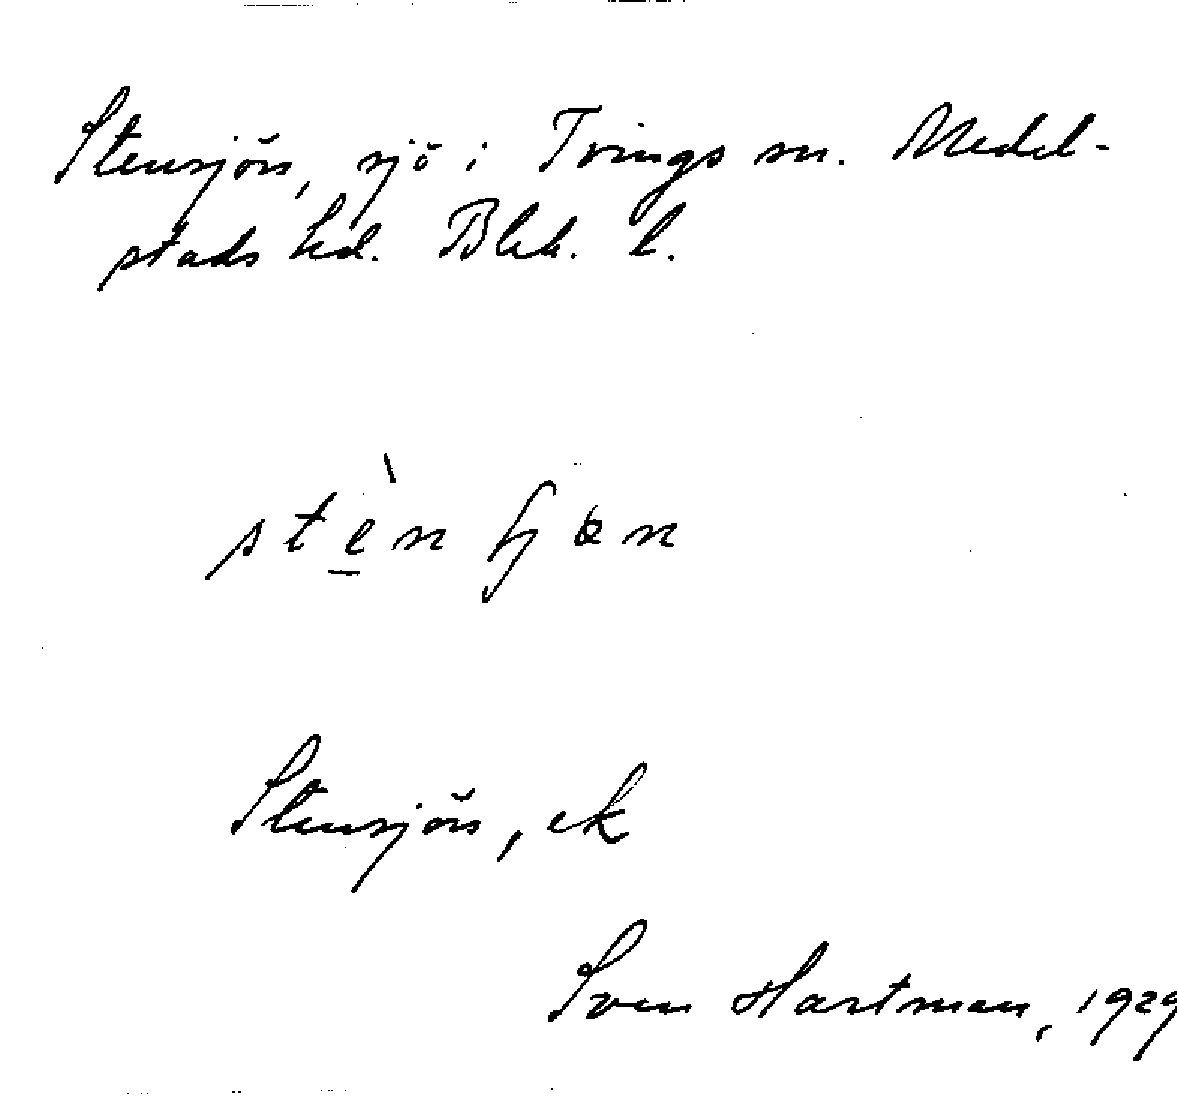 Stensjön, sjö i Tvings sn. Medel-
stads hd. Blek. l.
Stensjön, ek
Sven Hartman, 1929